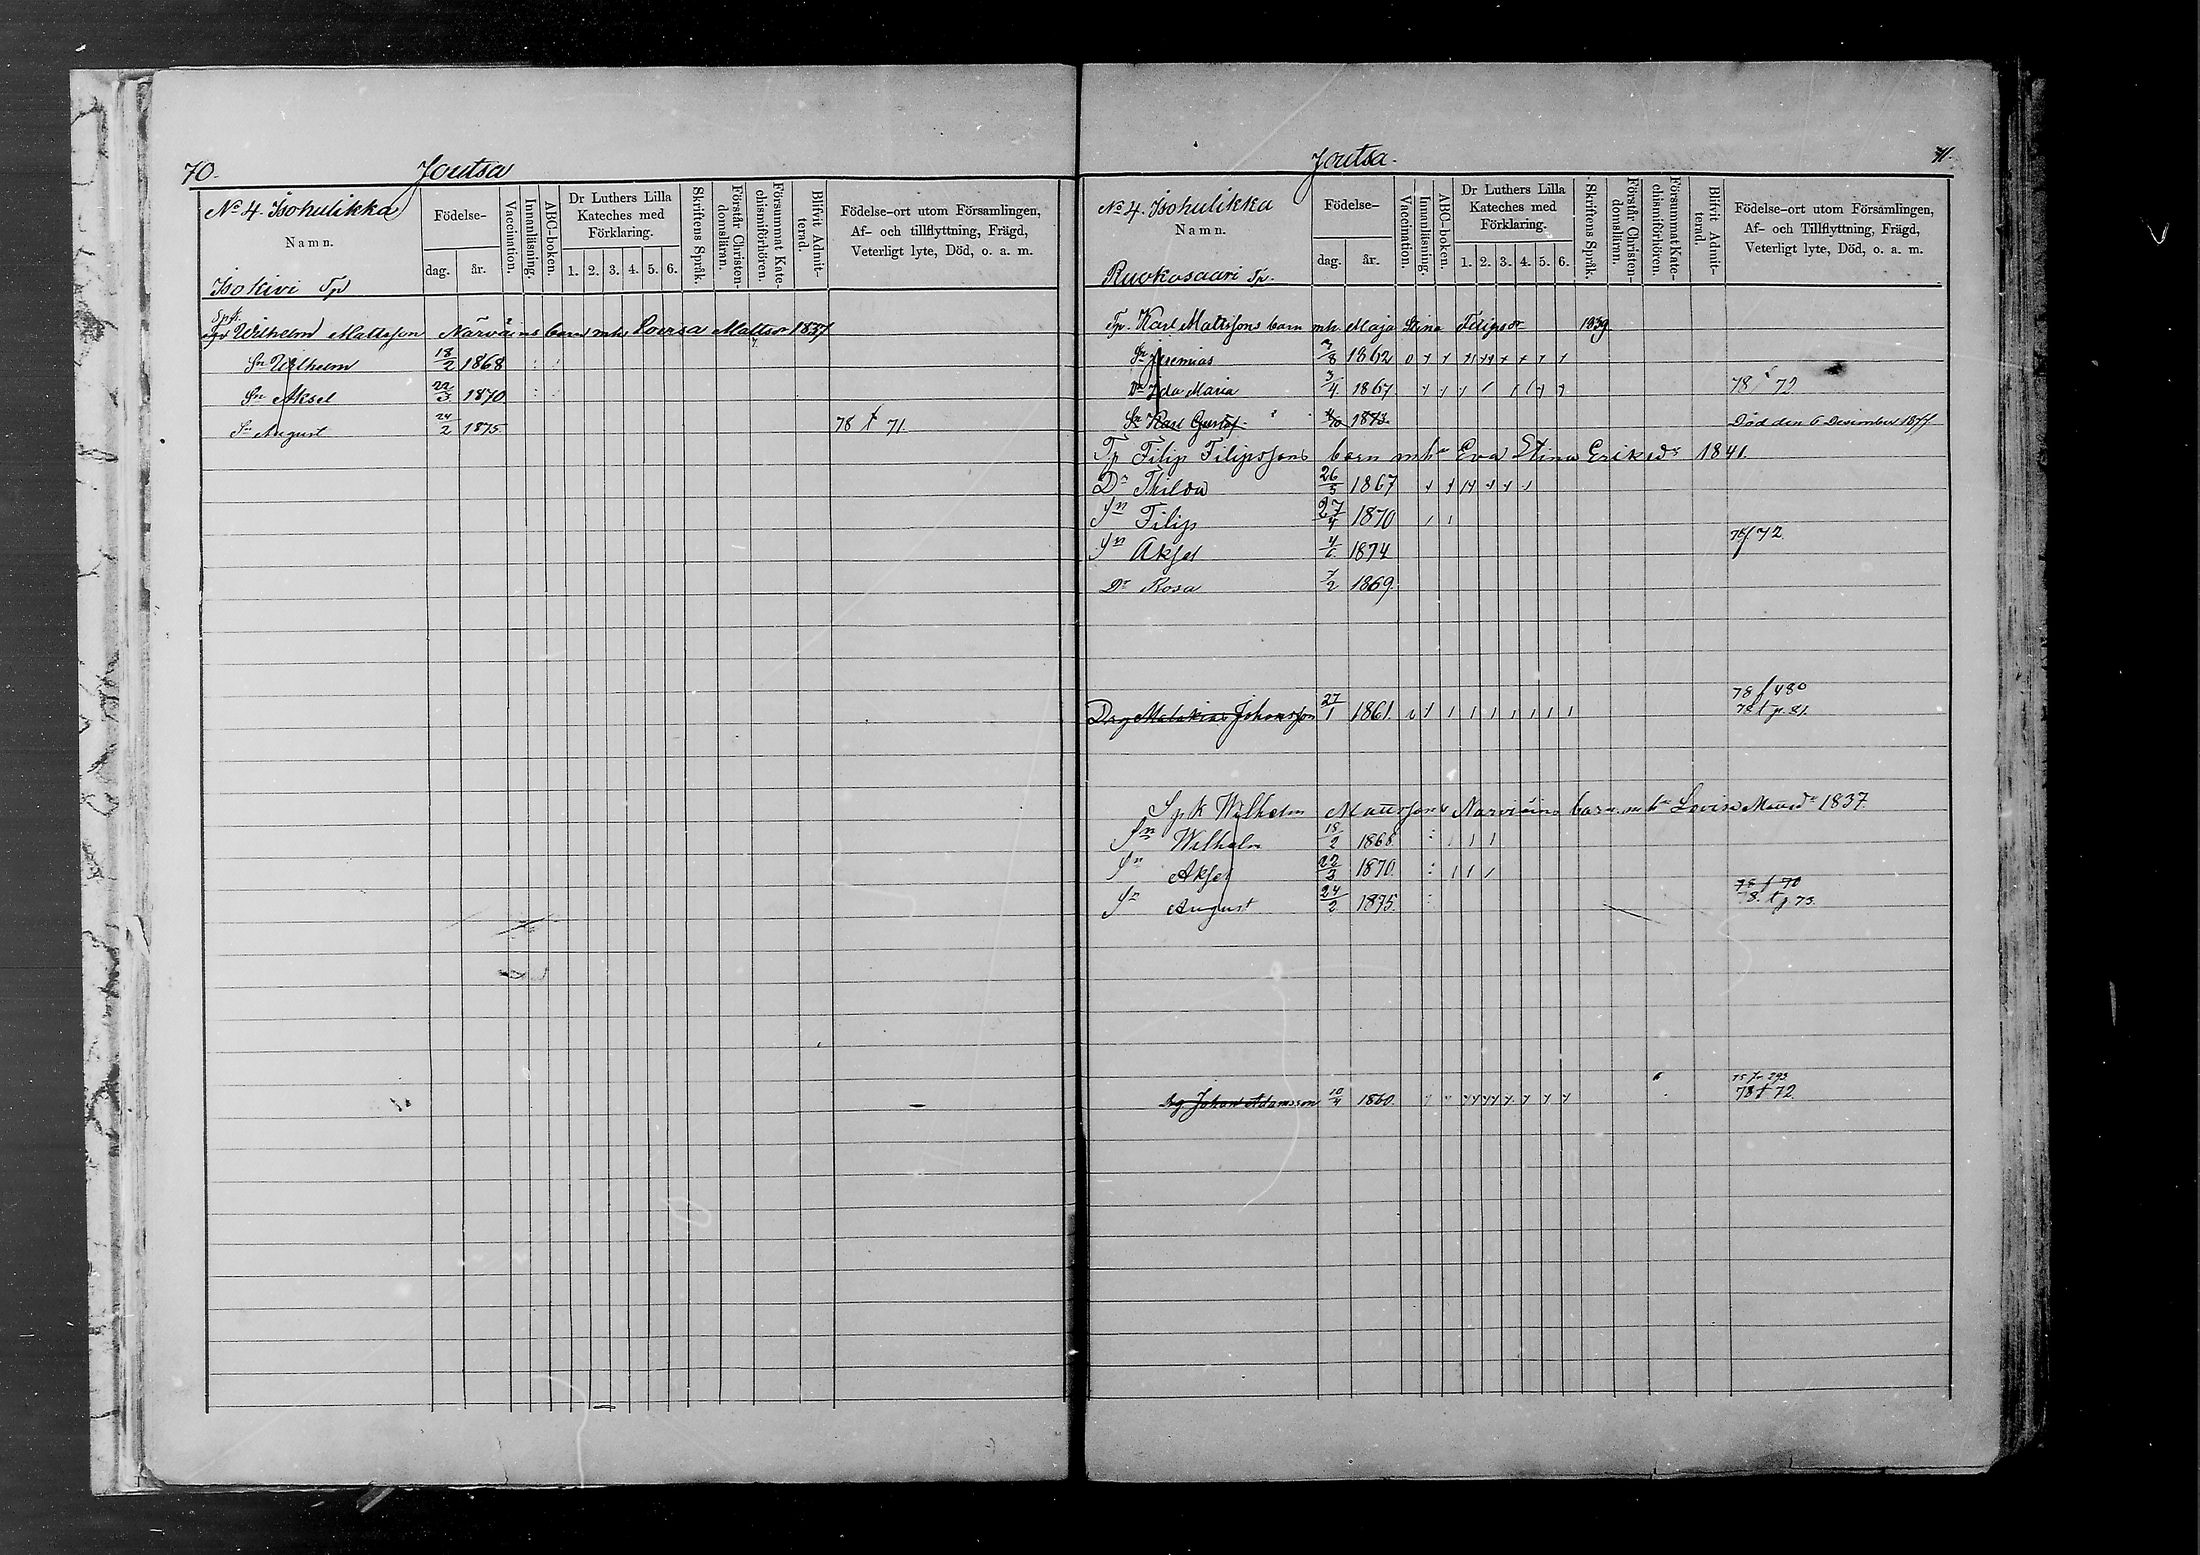 70.
Joutsa
No 4. Isohulikka
Namn.
Isokivi Tp
Födelse-
dag.
år.
Vaccination.
Innanläsning.
ABC-boken.
Dr Luthers Lilla
Kateches med
Förklaring.
1. 2. 3. 4. 5. 6.
Skriftens Språk.
Förstår Christen-
domsläran.
Försummat Kate-
chismiförhören.
Blifvit Admit-
terad.
Födelse-ort utom Församlingen,
Af- och tillflyttning, Frägd,
Veterligt lyte, Död, o. a. m.
Spk.
Wilhelm Mattsson Närväins barn mh Lovisa Mattsdr 1837
Sn Wilhelm 18/2 1868
Sn Aksel 22/3 1870
Sn August 24/2 1875 78 t 71
Joutsa.
71.
No 4. Isohulikka
Namn.
Ruokosaari Tp.
Födelse-
dag.
år.
Vaccination.
Innanläsning.
ABC-boken.
Dr Luthers Lilla
Kateches med
Förklaring.
1. 2. 3. 4. 5. 6.
Skriftens Språk.
Förstår Christen-
domsläran.
Försummat Kate-
chismiförhören.
Blifvit Admit-
terad.
Födelse-ort utom Församlingen,
Af- och Tillflyttning, Frägd,
Veterligt lyte, Död, o. a. m.
Tp. Karl Mattssons barn mh. Maja Stina Filipsdr 1839
Sn Jeremias 3/8 1862
Dr Ida Maria 3/4 1867 78 t 72
Sn Karl Gustaf 1873 Död den 6 Desember 1877
Tp Filip Filipssons barn mhu Eva Stina Eriksdr 1841.
Dr Thilda 26/5 1867
Sn Filip 27/4 1870
Sn Aksel 4/6 1874 78 f 72
Dr Rosa 7/2 1869.
Drg Malakias Johansson 27/1 1861. 78 f 480
78 t p. 81.
Spk Wilhelm Mattssons Narviäins barn mhu Lovisa Mattsdr 1837.
Sn Wilhelm 18/2 1868
Sn Aksel 22/3 1870
Sn August 24/2 1875. 78 f 70
78. t p 73.
Drg Johan Adamsson 10/4 1860. 75 fr 293
78 t 72.